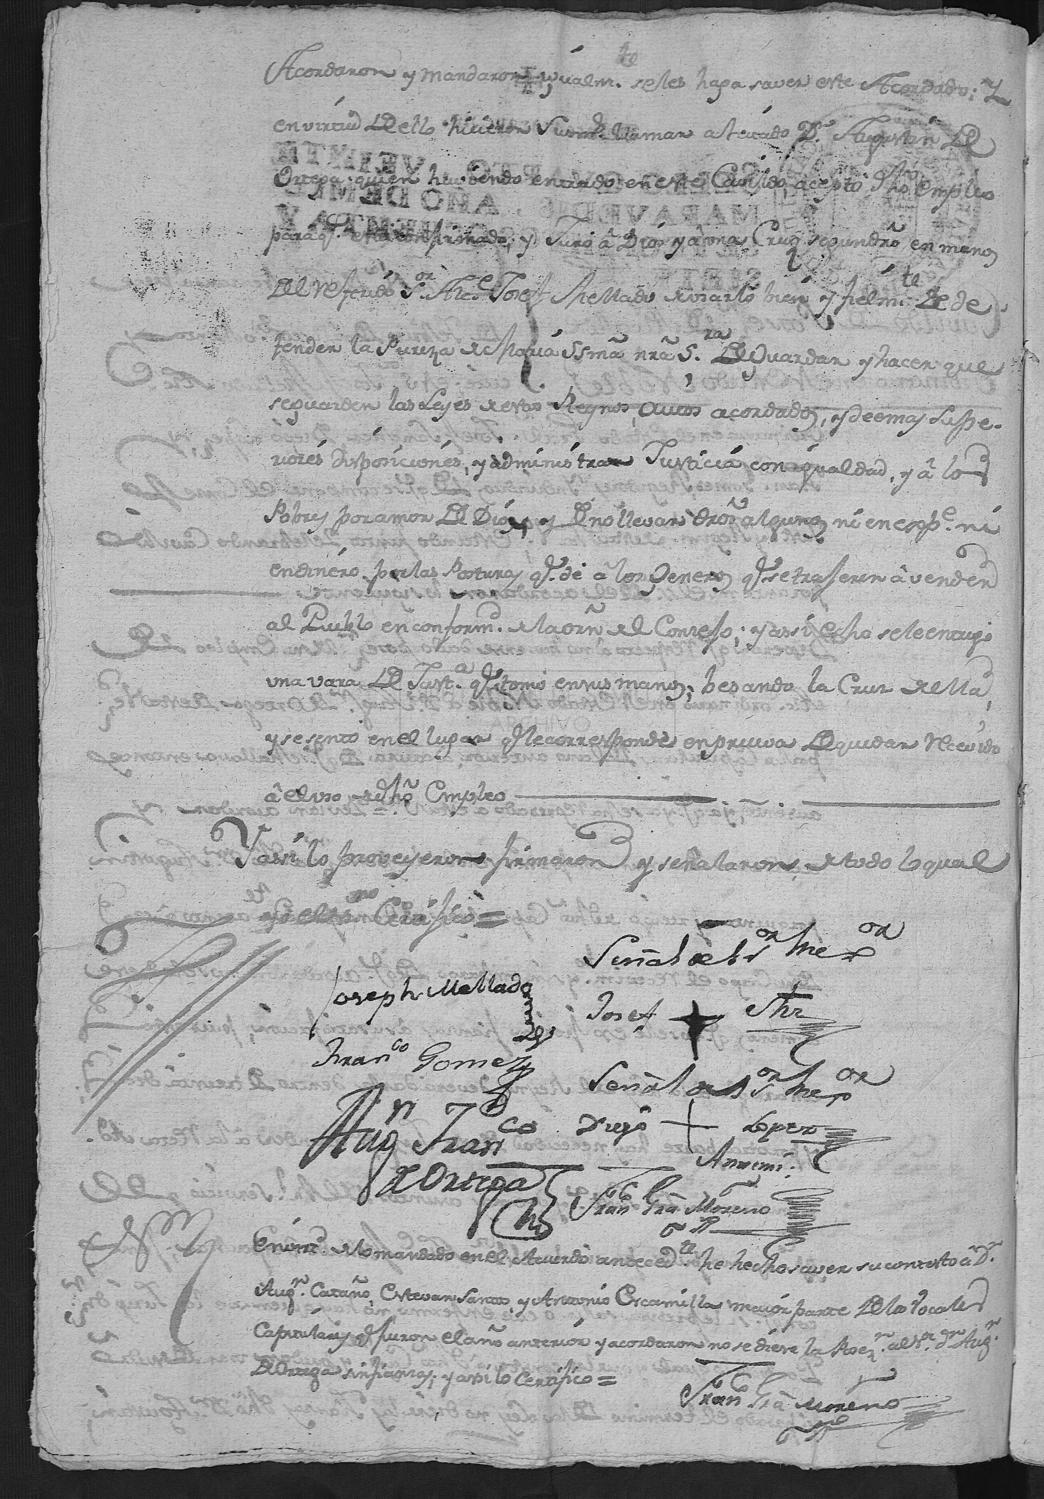 Acordaron y mandaron ygualm.te se les haga saver este Acordado; Y
en virtud de ello hicieron sus mrds llamar a
Ortega quien haviendo entrado en este Cavildo acepto dho Empleo
para q.e esta nombrado, y Juro â Dios y â una Cruz segun dro en manos
del referido S.or Alc.e Josef Mellado de usarlo bien y fielm.te de de
fender la Pureza de Maria SSmâ nrâ S.ra de Guardar y hacer que
se guarden las Leyes de estos Reynos, Autos acordados, y demas Supe-
riores disposiciones, y administrar Justicia con igualdad, y â los
Pobres por amor de Dios, y de no llevar dros algunos ni en esp.e ni
en dinero por las Posturas q.e dê a los Generos q.e se trageren â vender
al Pueblo en conform.d de la orn del Consejo; y assi echo se le entregô
una vara de Just.a q.e tomô en sus manos, besando la Cruz de ella,
y se sento en el lugar q.e le corresponde en prueva de quedar recivido
â el uso de dho Empleo
Y assi lo proveyeron firmaron y señalaron, de todo lo qual
yo el ss.no Certifico =
Señal de el S.or Me.or
Joseph Mellado
Josef + Shz
Fran.co Gomez
Señal de el S.or Me.or
Diego + Lopez
Aug.n Fran.co
de Ortega
Antemi.
Fran.co Grâ Moreno
En virt.d de lo mandado en el Acuerdo anteced.te he hecho saver su contexto â D.n
Aug.n Cataño, Estevan Santos y Antonio Escamilla mayor parte de los Vocales
Capitulares q.e fueron el año anterior y acordaron no se diese la al S.r D.n Aug.n
de Ortega sin fianzas, y assi lo Certifico =
Fran.co Grâ Moreno